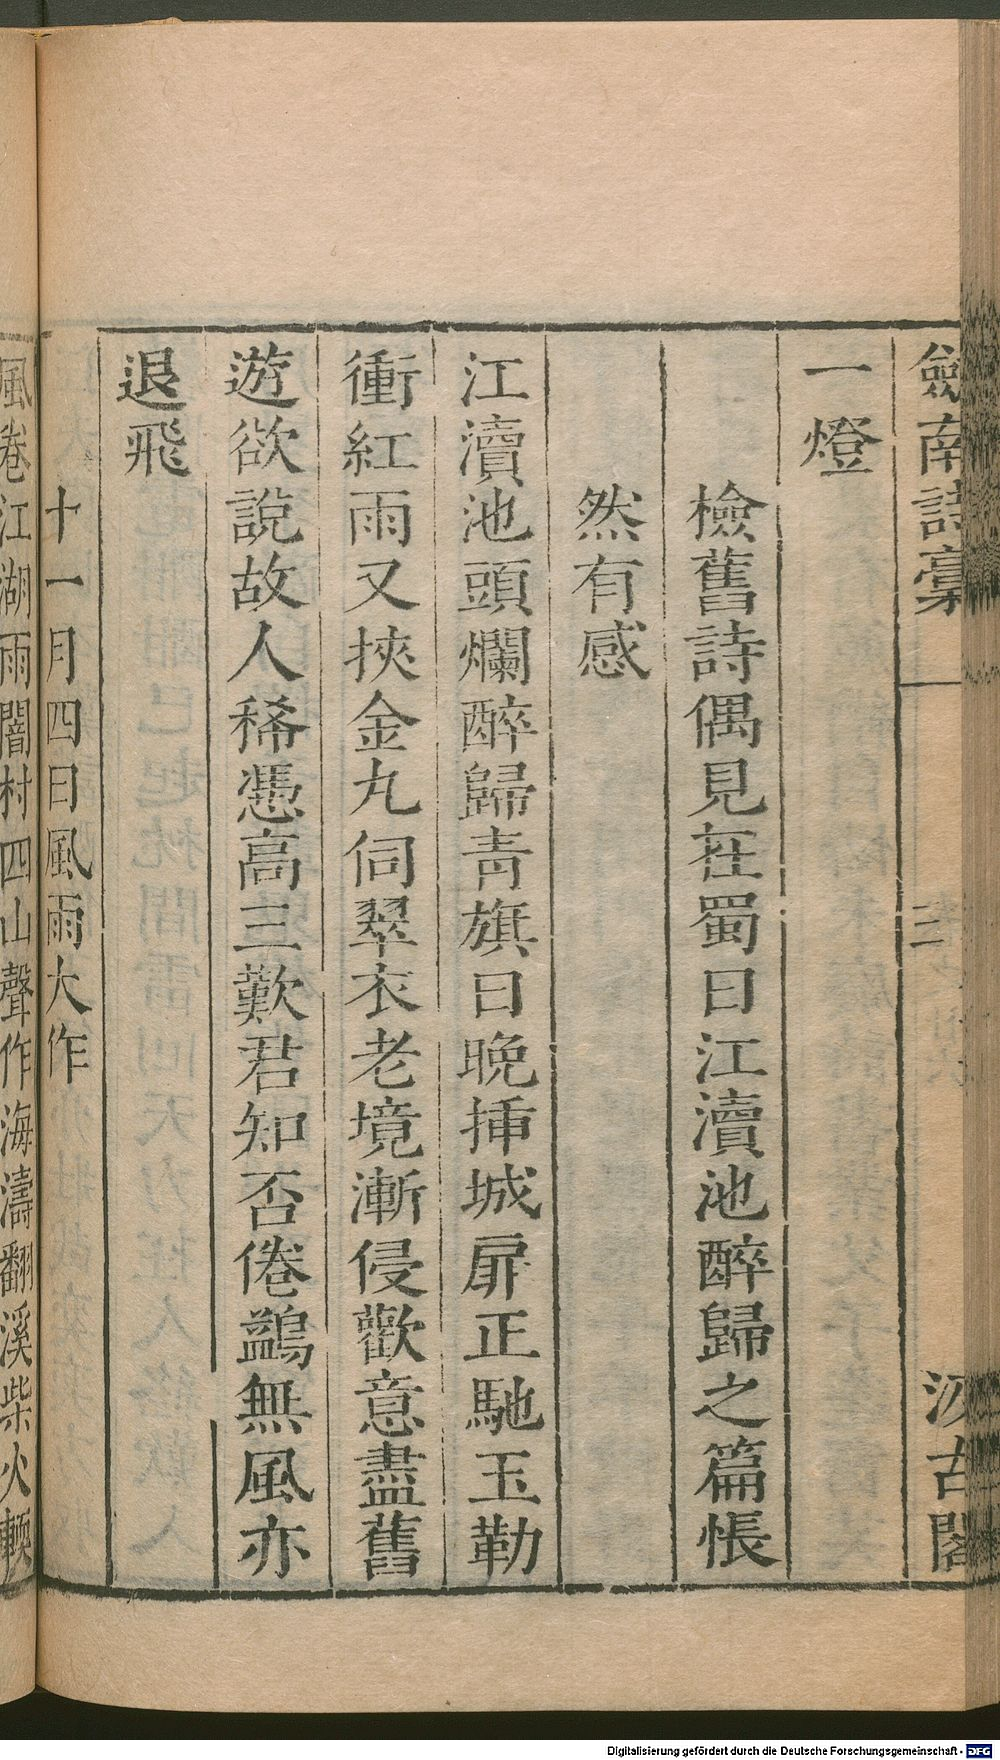 劍南詩稾
三
汲古閣
一燈
檢舊詩偶見在蜀日江瀆池醉歸之篇悵
然有感
江瀆池頭爛醉歸靑旗日晚揷城扉正馳玉勒
衝紅雨又挾金丸伺翠衣老境漸侵歡意盡舊
遊欲說故人稀憑高三歎君知否倦鷁無風亦
退飛
十一月四日風雨大作
風卷江湖雨闇村四山聲作海濤翻溪柴火軟
Digitalisierung gefördert durch die Deutsche Forschungsgemeinschaft - DFG